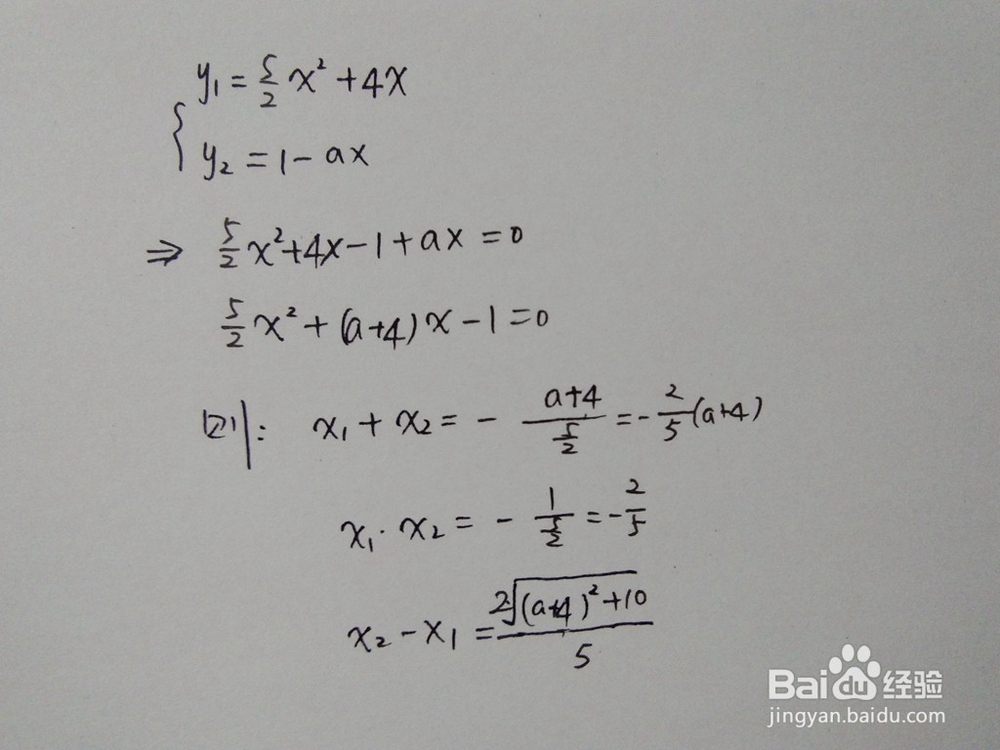 y₁ = 5/2 x² + 4x
y₂ = 1 - ax
⇒ 5/2 x² + 4x - 1 + ax = 0
5/2 x² + (a+4) x - 1 = 0
则: x₁ + x₂ = - (a+4)/(5/2) = - 2/5 (a+4)
x₁ · x₂ = - 1/(5/2) = - 2/5
x₂ - x₁ = 2√((a+4)² + 10)/5
Baidu经验
jingyan.baidu.com